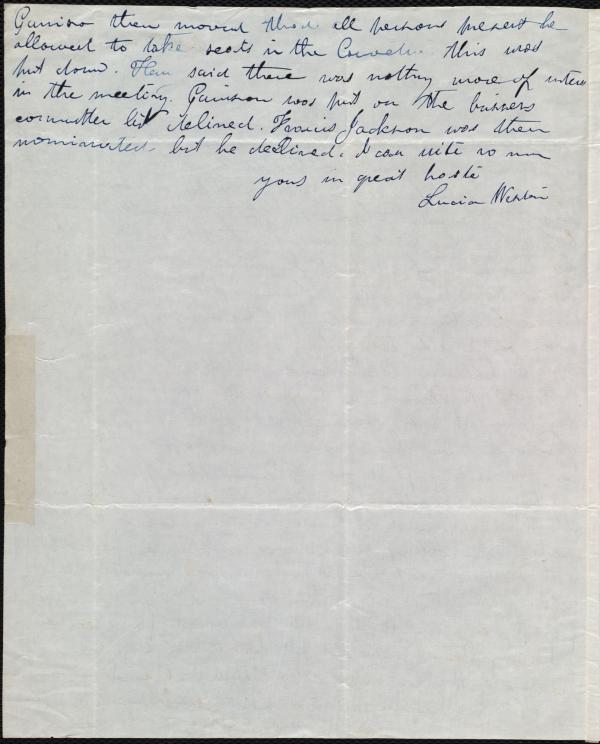 Garrison then moved that all persons present be
allowed to take seats in the Conven. this was
put down. Then said there was nothing more of inter
in the meeting. Garrison was put on the business
committee but delined. Francis Jackson was then
nominated but he declined. I can write no mor
yours in great haste
Lucia Weston